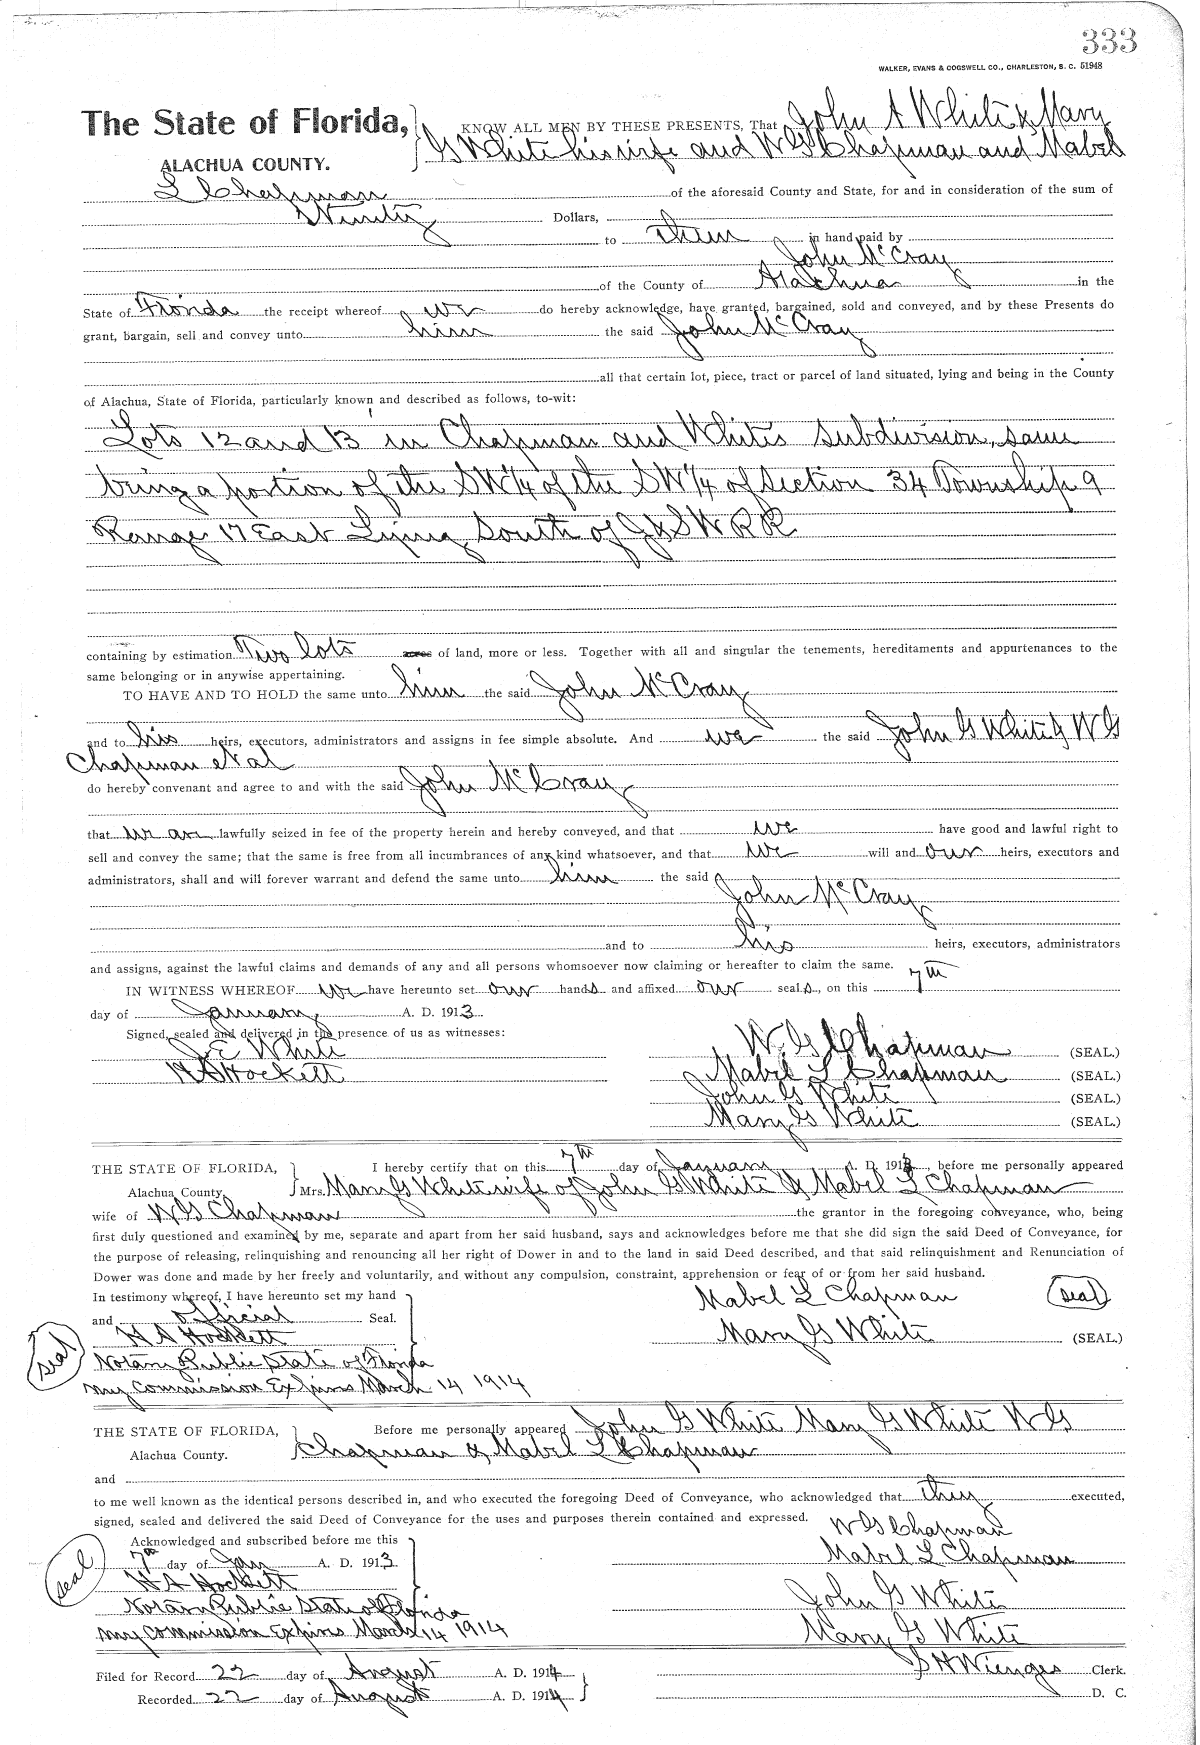 333
WALKER, EVANS & COGSWELL CO., CHARLESTON, S. C. 51948
The State of Florida,
ALACHUA COUNTY.
KNOW ALL MEN BY THESE PRESENTS, That John A White & Mary
G White his wife and W G Chapman and Mabel
L Chapman of the aforesaid County and State, for and in consideration of the sum of
Dollars,
to them in hand paid by
John McCray
of the County of Alachua in the
State of Florida the receipt whereof we do hereby acknowledge, have granted, bargained, sold and conveyed, and by these Presents do
grant, bargain, sell and convey unto him the said John McCray
all that certain lot, piece, tract or parcel of land situated, lying and being in the County
of Alachua, State of Florida, particularly known and described as follows, to-wit:
Lots 12 and 13 in Chapman and Whites Subdivision, same
being a portion of the SW 1/4 of the SW 1/4 of Section 34 Township 9
Range 17 East Lying South of J & S W R R
containing by estimation Two lots acres of land, more or less. Together with all and singular the tenements, hereditaments and appurtenances to the
same belonging or in anywise appertaining.
TO HAVE AND TO HOLD the same unto him the said John McCray
and to his heirs, executors, administrators and assigns in fee simple absolute. And we the said John G White & W G
Chapman et al
do hereby convenant and agree to and with the said John McCray
that we are lawfully seized in fee of the property herein and hereby conveyed, and that we have good and lawful right to
sell and convey the same; that the same is free from all incumbrances of any kind whatsoever, and that we will and our heirs, executors and
administrators, shall and will forever warrant and defend the same unto him the said
John McCray
and to his heirs, executors, administrators
and assigns, against the lawful claims and demands of any and all persons whomsoever now claiming or hereafter to claim the same.
IN WITNESS WHEREOF we have hereunto set our hands and affixed our seals, on this 7th
day of January A. D. 1913
Signed, sealed and delivered in the presence of us as witnesses:
J E White
H A Hockett
W. G Chapman (SEAL.)
Mabel L Chapman (SEAL.)
John G White (SEAL.)
Mary G White (SEAL.)
THE STATE OF FLORIDA,
Alachua County.
I hereby certify that on this 7th day of January A. D. 1913, before me personally appeared
Mrs. Mary G White wife of John G White & Mabel L Chapman
wife of W G Chapman the grantor in the foregoing conveyance, who, being
first duly questioned and examined by me, separate and apart from her said husband, says and acknowledges before me that she did sign the said Deed of Conveyance, for
the purpose of releasing, relinquishing and renouncing all her right of Dower in and to the land in said Deed described, and that said relinquishment and Renunciation of
Dower was done and made by her freely and voluntarily, and without any compulsion, constraint, apprehension or fear of or from her said husband.
In testimony whereof, I have hereunto set my hand
and official Seal.
H A Hockett
seal
Notary Public State of Florida
my commission Expires March 14 1914
Mabel L Chapman seal
Mary G White (SEAL.)
THE STATE OF FLORIDA,
Alachua County.
Before me personally appeared John G White Mary G White W G
Chapman & Mabel L Chapman
and
to me well known as the identical persons described in, and who executed the foregoing Deed of Conveyance, who acknowledged that they executed,
signed, sealed and delivered the said Deed of Conveyance for the uses and purposes therein contained and expressed.
Acknowledged and subscribed before me this
7th day of Jan A. D. 1913
seal
H A Hockett
Notary Public State of Florida
my commission Expires March 14 1914
W G Chapman
Mabel L Chapman
John G White
Mary G White
Filed for Record 22 day of August A. D. 1914
Recorded 22 day of August A. D. 1914
S H Wienges Clerk.
D. C.